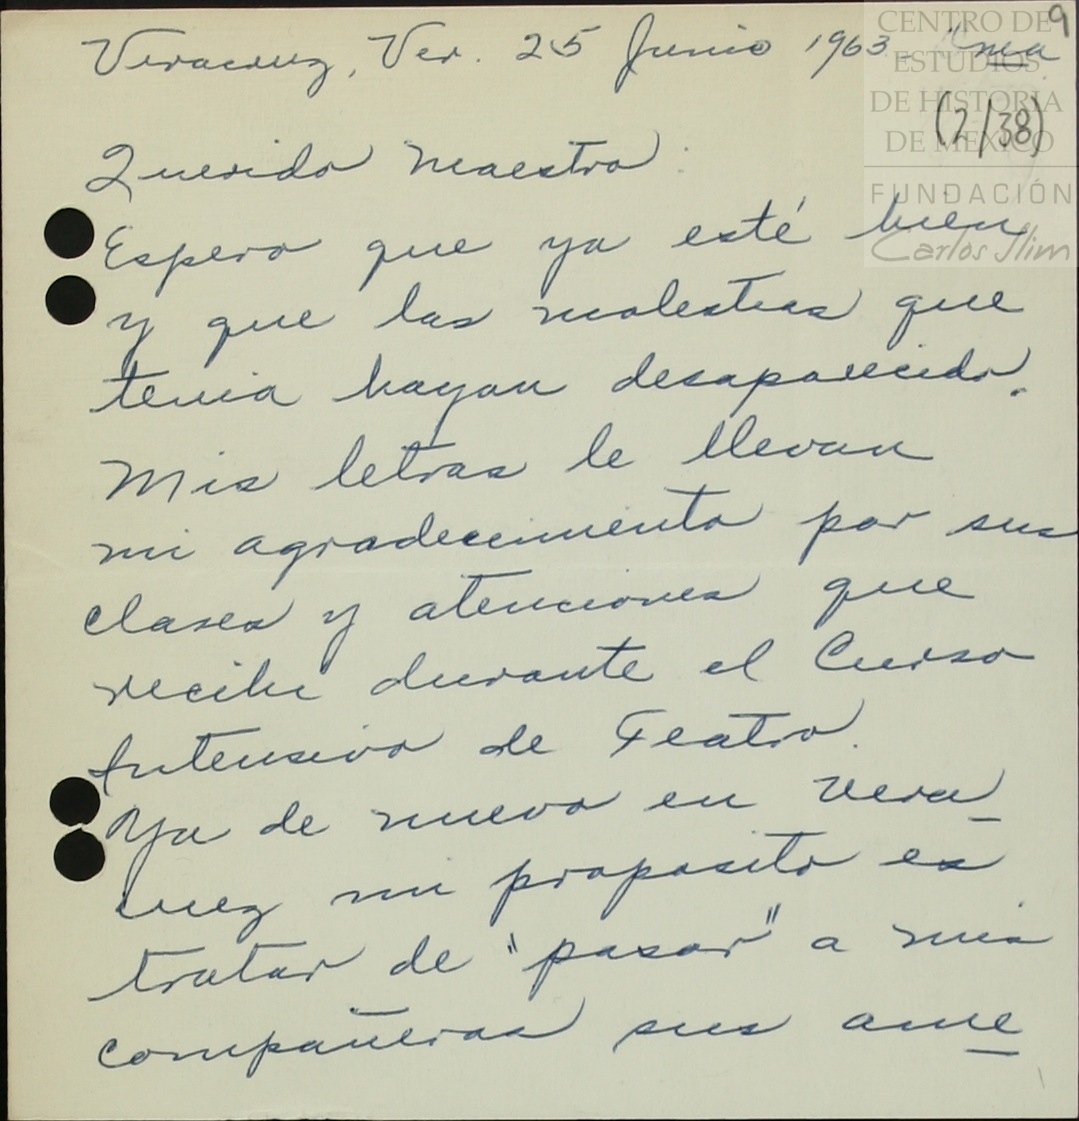 9
Veracruz, Ver. 25 Junio 1963.
(2/38)
CENTRO DE
ESTUDIOS
DE HISTORIA
DE MÉXICO
FUNDACIÓN
Carlos Slim
Querido Maestro:
Espero que ya esté bien
y que las molestias que
tenia hayan desaparecido.
Mis letras le llevan
mi agradecimiento por sus
clases y atenciones que
recibi durante el Curso
Intensivo de Teatro.
Ya de nuevo en Vera
cruz mi proposito es
tratar de "pasar" a mis
compañeras sus ame